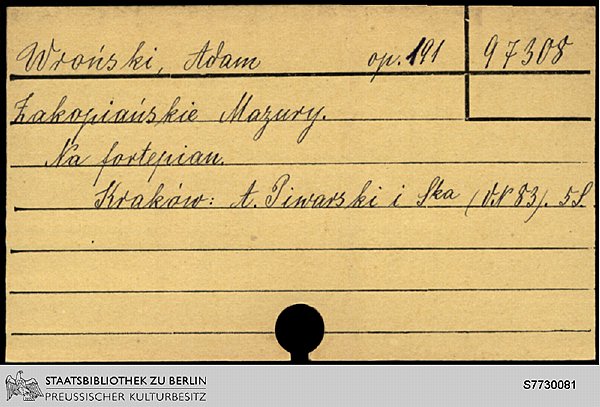 Wroński, Adam op. 191 97308
Zakopiańskie Mazury.
Na fortepian.
Kraków: A. Piwarski i Ska (VN 83). 5 S.
STAATSBIBLIOTHEK ZU BERLIN
PREUSSISCHER KULTURBESITZ
S7730081